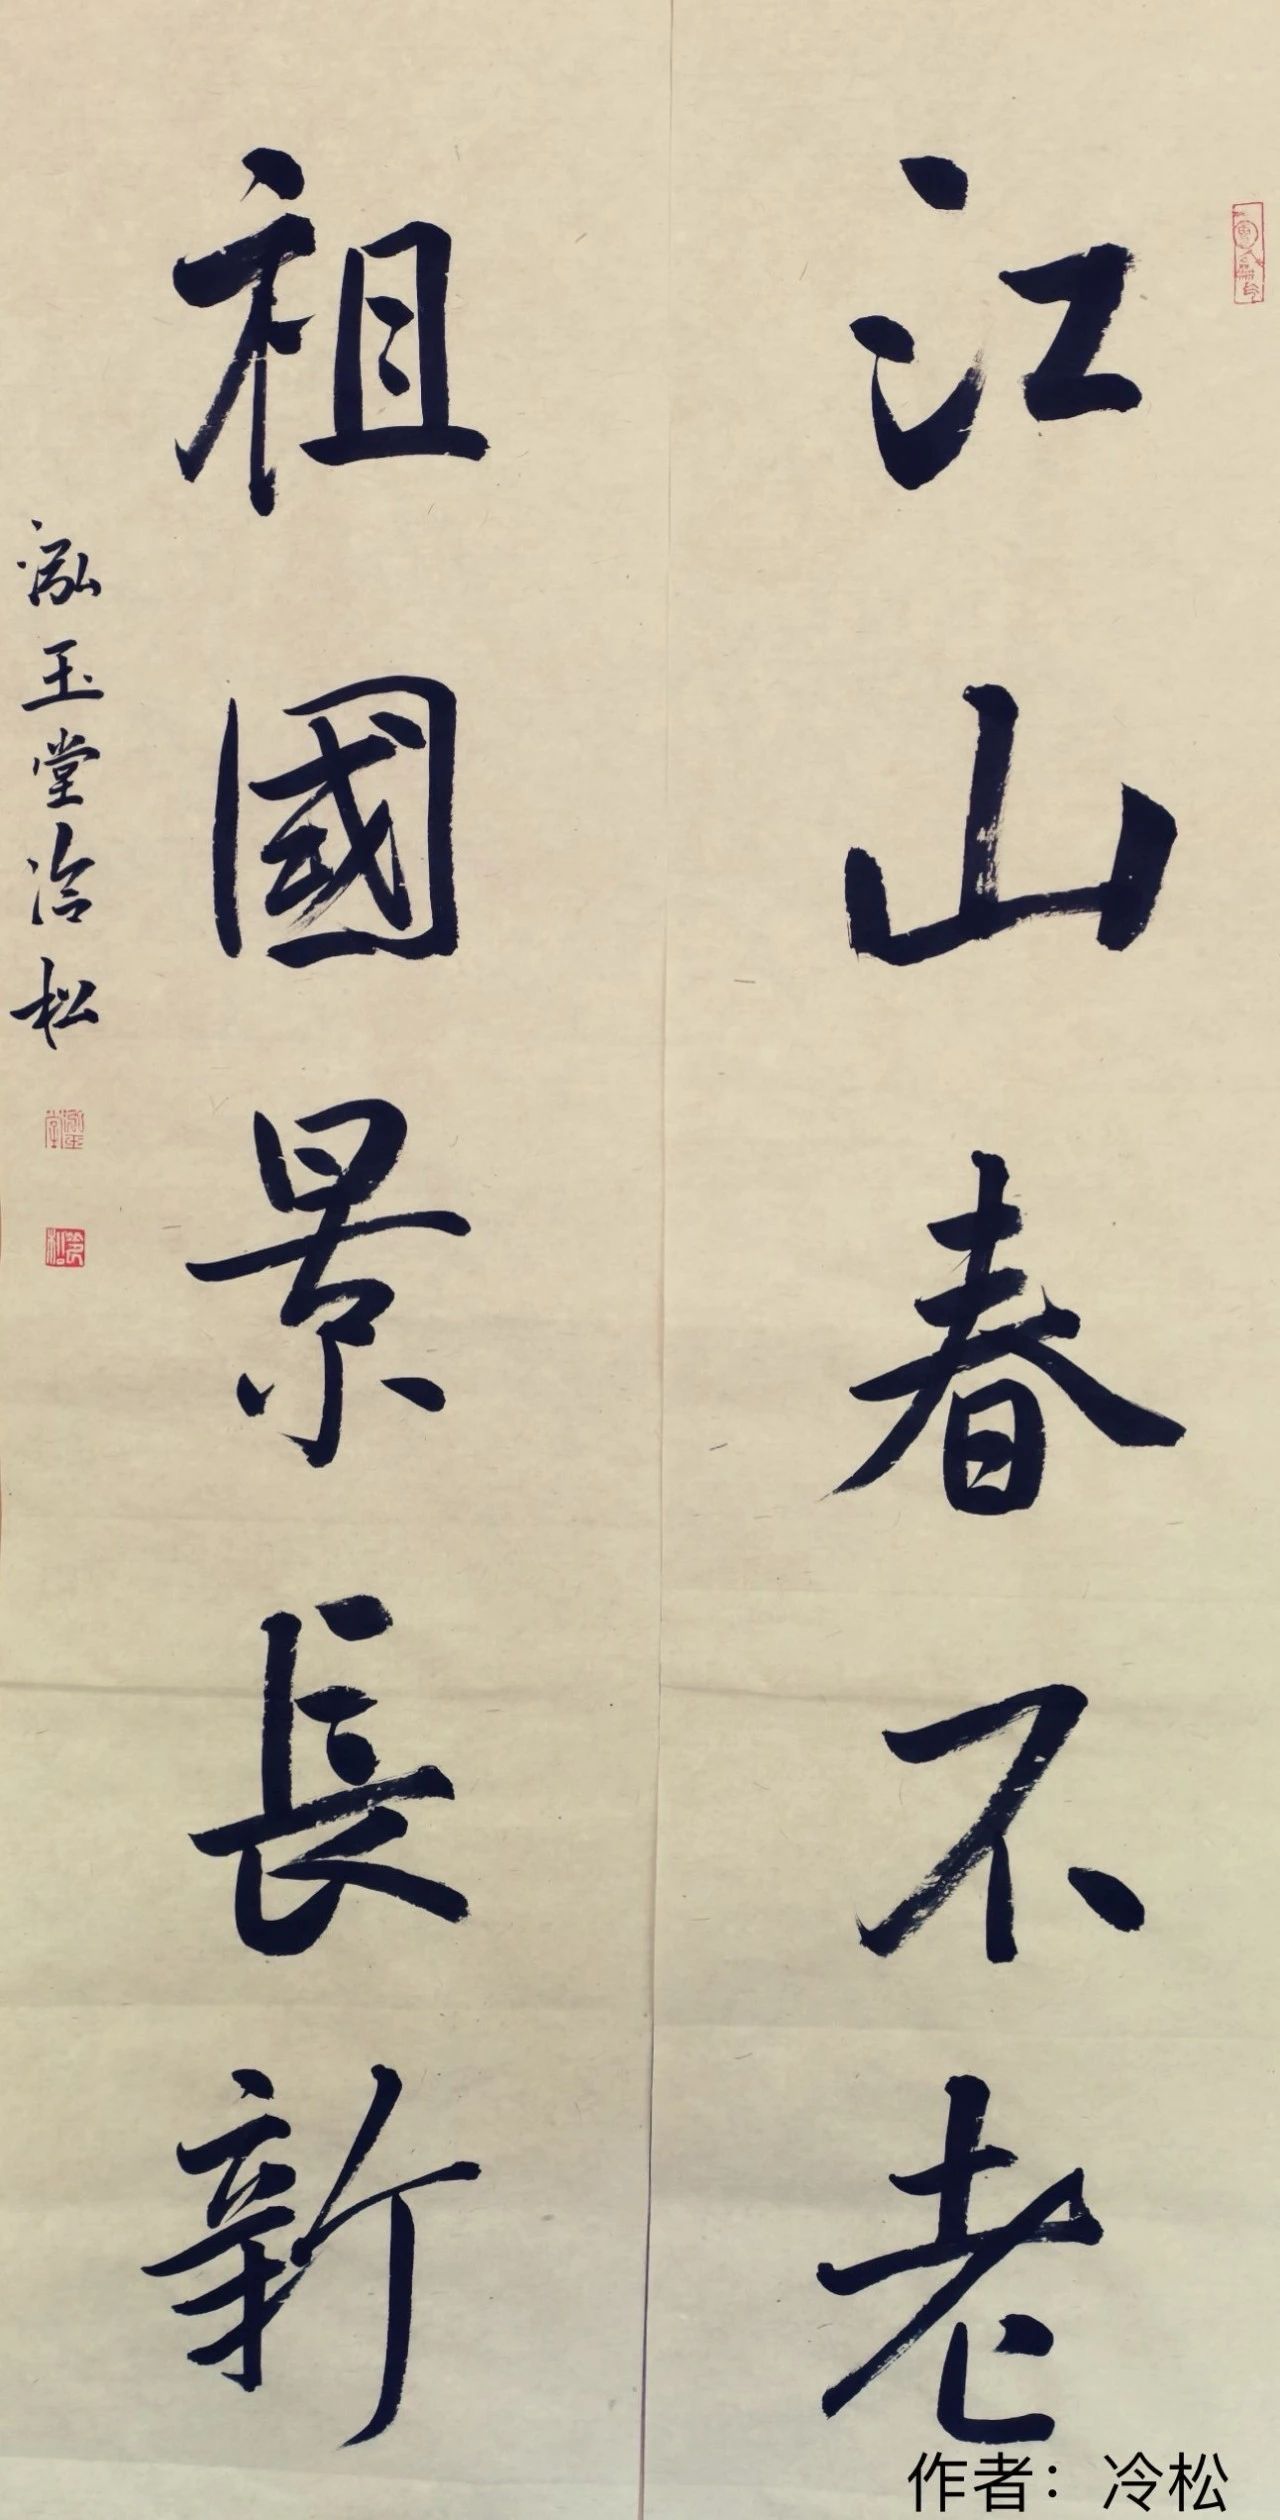 江山春不老
祖國景長新
泓玉堂冷松
作者：冷松